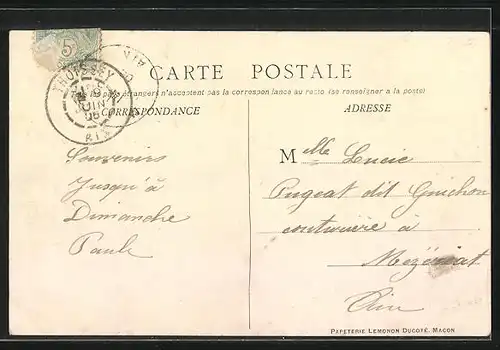 5
THOISSEY
JUIN
05
AIN
CARTE POSTALE
pays étrangers n'acceptent pas la correspondance au recto (se renseigner à la poste)
CORRESPONDANCE
ADRESSE
Souvenirs
Jusqu'à
Dimanche
Paule
Mlle Lucie
Pugeat dit Guichon
couturière à
Mézériat
Ain
PAPETERIE LEMONON DUCOTÉ, MACON